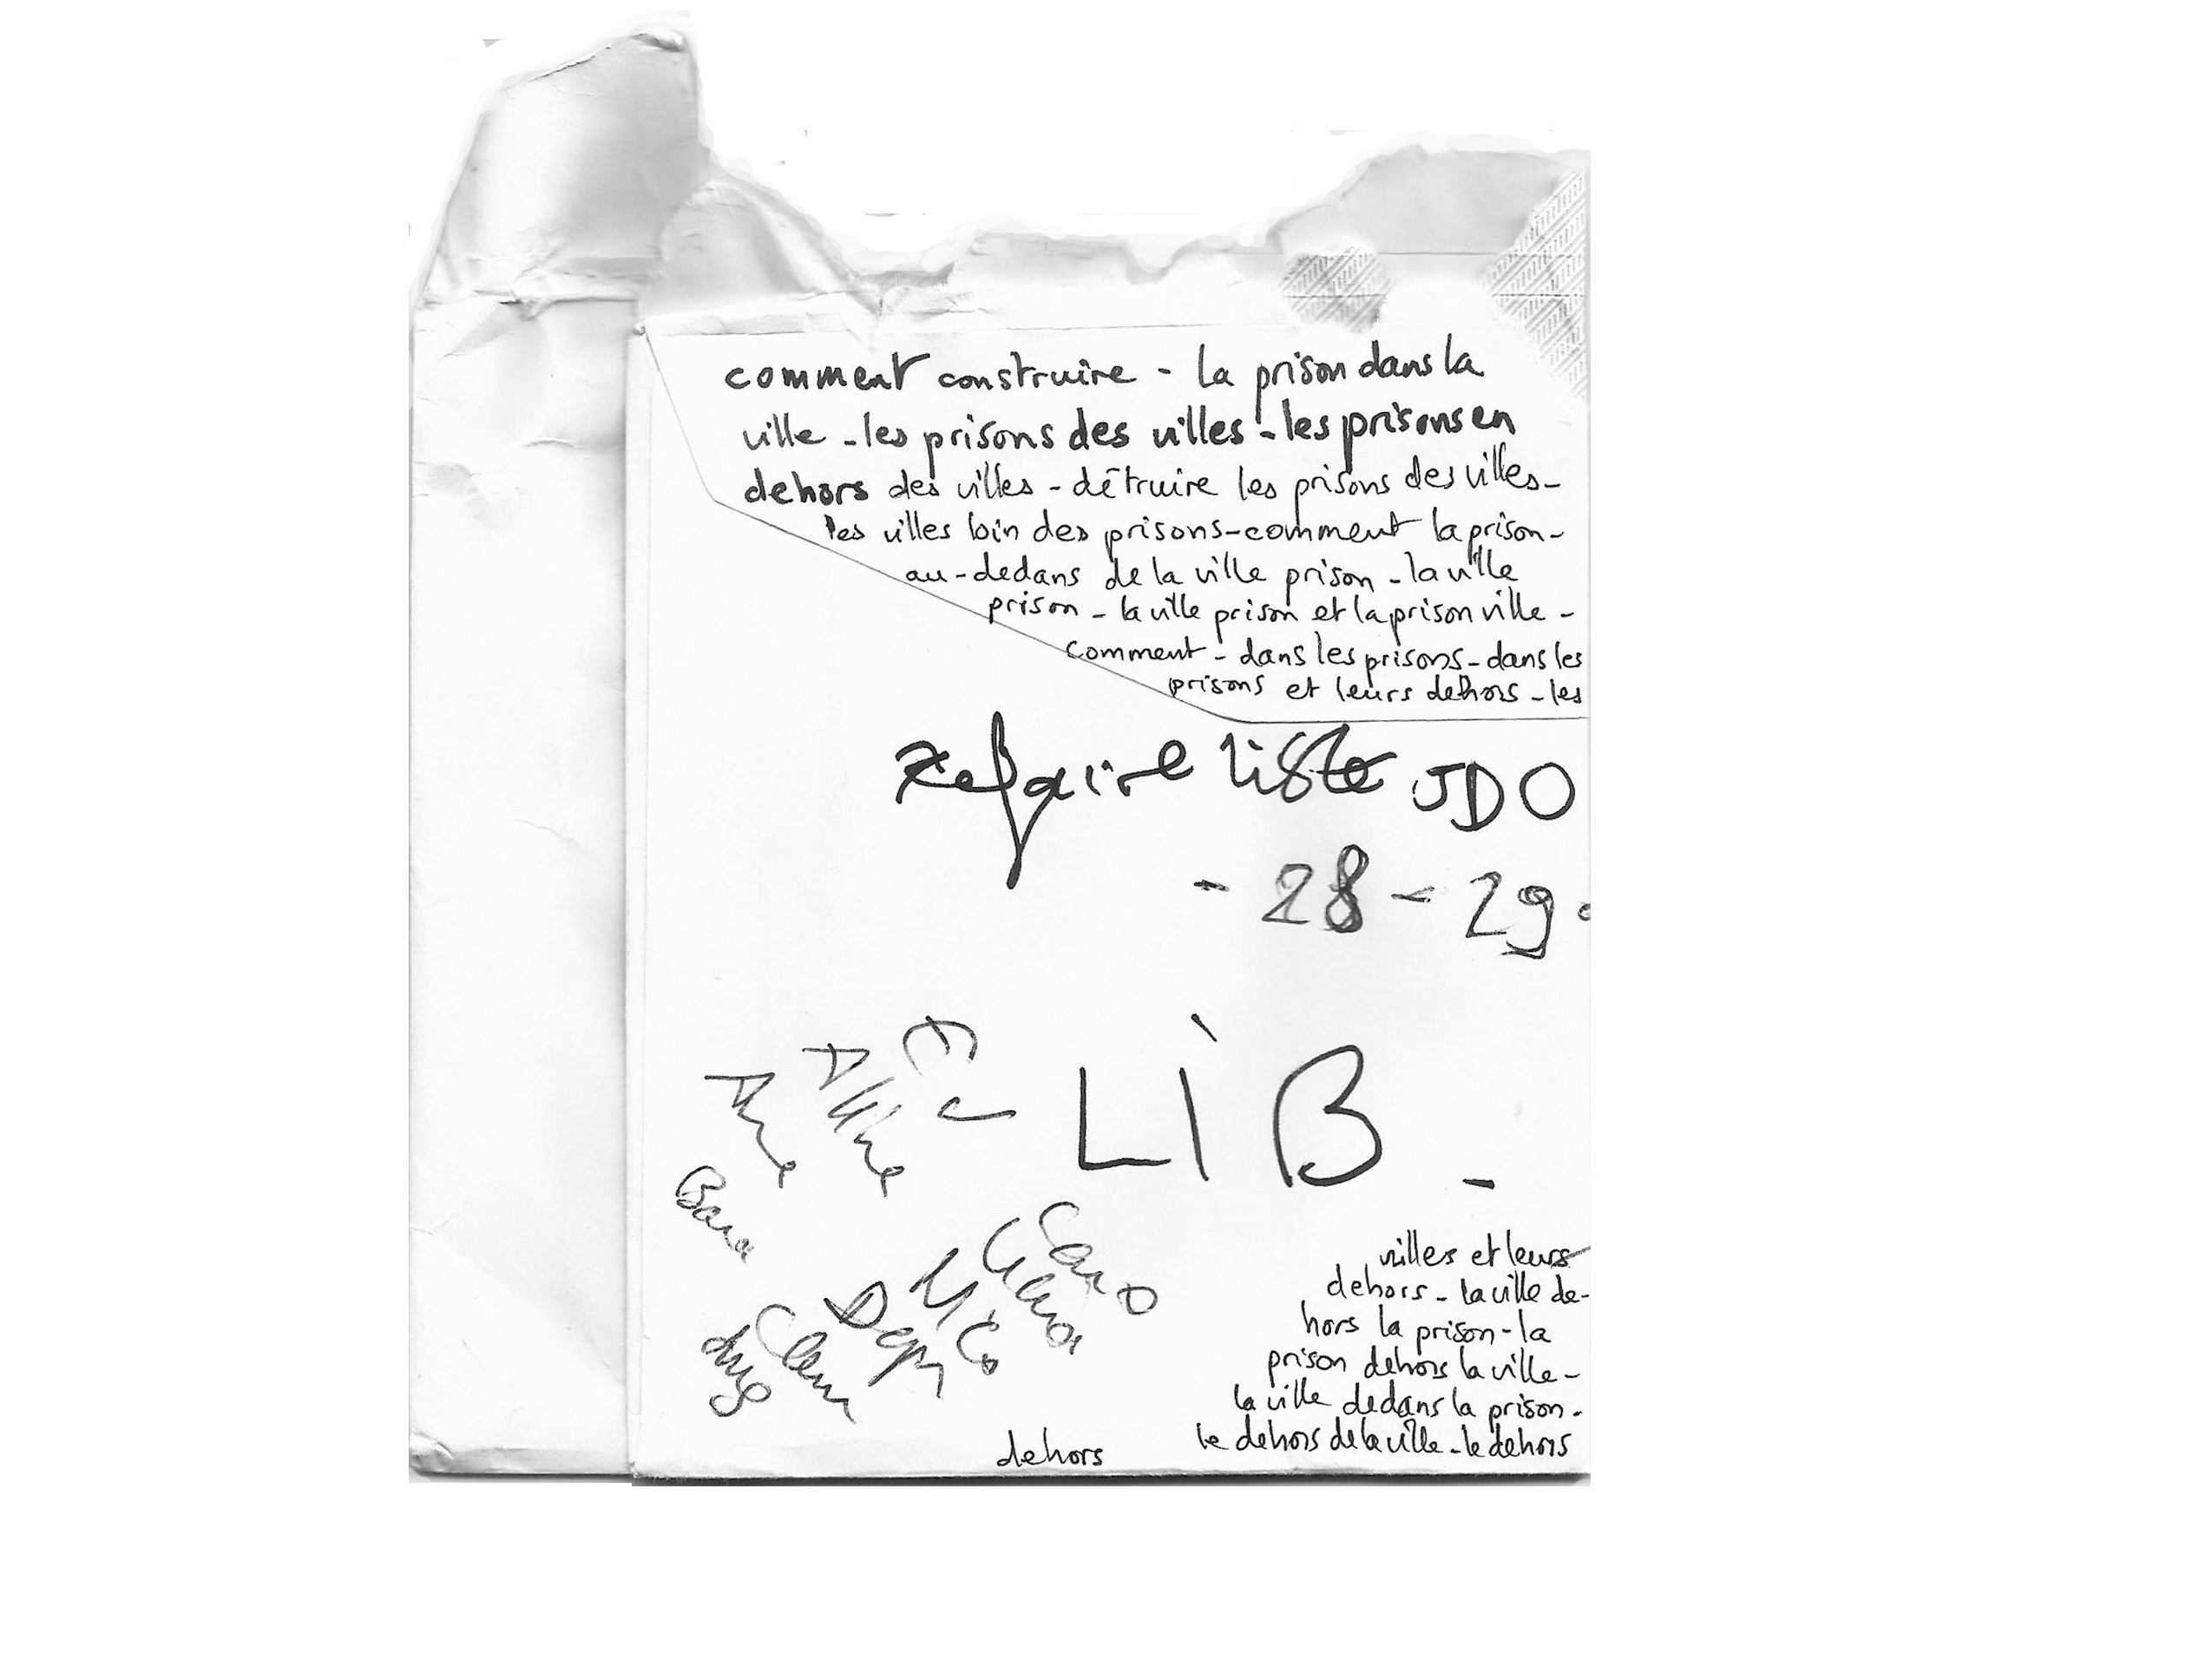 comment construire - la prison dans la
ville - les prisons des villes - les prisons en
dehors des villes - détruire les prisons des villes -
les villes loin des prisons - comment la prison -
au-dedans de la ville prison - la ville
prison - la ville prison et la prison ville -
comment - dans les prisons - dans les
prisons et leurs dehors - les
refaire liste JDO
- 28 - 29
LIB -
villes et leurs
dehors - la ville de-
hors la prison - la
prison dehors la ville -
la ville dedans la prison -
le dehors de la ville - le dehors
dehors